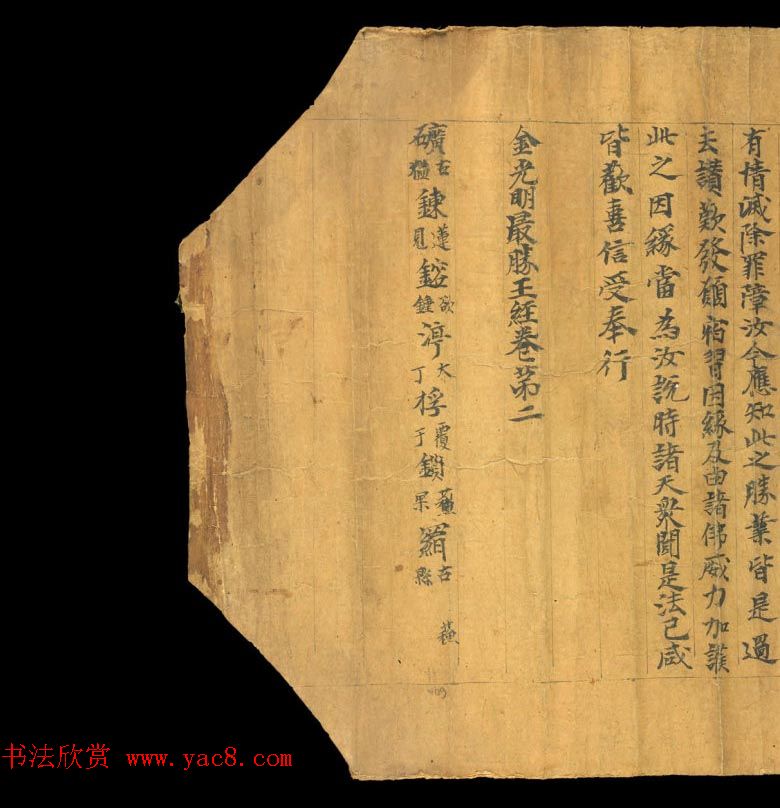 有情滅除罪障汝今應知此之勝業皆是過
去讚歎發願宿習因緣及由諸佛威力加護
此之因緣當為汝說時諸天眾聞是法已咸
皆歡喜信受奉行
金光明最勝王經卷第二
礦古猛鍊蓮見鎔欲鍾渟大丁桴覆于鎖蘓果羂古縣
蘓
书法欣赏 www.yac8.com